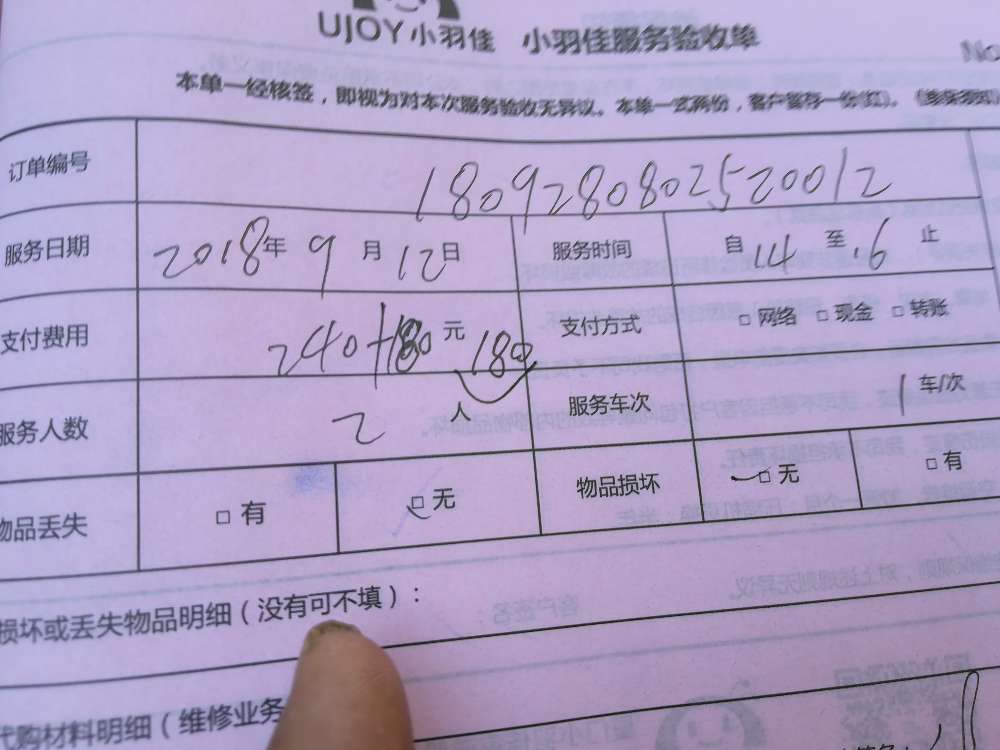 UJOY小羽佳 小羽佳服务验收单
No
本单一经核签，即视为对本次服务验收无异议。本单一式两份，客户留存一份(红)。
订单编号 180928080252001 2
服务日期 2018年9月12日 服务时间 自14至16止
支付费用 240+180元 180 支付方式 □网络 □现金 □转账
服务人数 2人 服务车次 1车/次
物品丢失 □有 □无 物品损坏 □无 □有
损坏或丢失物品明细（没有可不填）：
代购材料明细（维修业务